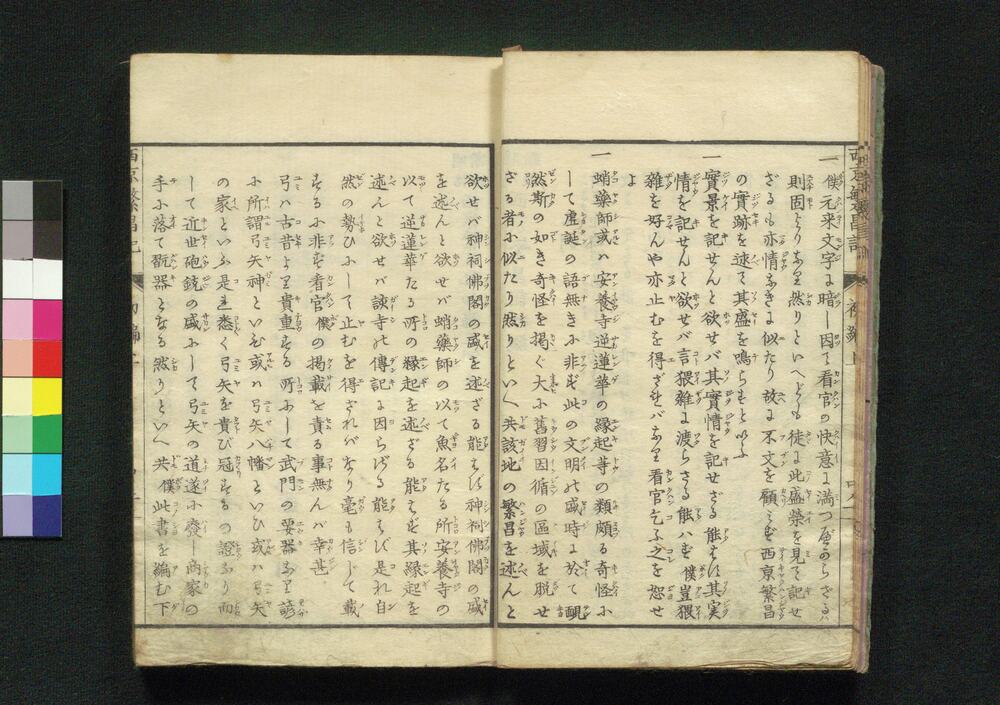 一僕元来文字に暗し因て看官の快意に満つ可からざるハ
則固よりなり然りといへども徒に此盛榮を見て記せ
ざるも亦情なきに似たり故に不文を顧みず西京繁昌
の實跡を述て其盛を鳴らすと以ふ
一實景を記せんと欲せバ其實情を記せざる能はず其実
情を記せんと欲せバ言猥雑に渡らざる能ハず僕豈猥
雑を好んや亦止むを得ざれバなり看官乞ふ之を恕せ
よ
一蛸藥師或ハ安養寺逆蓮華の縁起等の類頗る奇怪に
して虚誕の語無きに非ず此の文明の盛時に於て
然斯の如き奇怪を掲ぐ大に舊習因循の區域を脱せ
ざる者に似たり然りといへ共該地の繁昌を述んと
西京繁昌記 初編上
欲せバ神祠佛閣の盛を述ざる能はず神祠佛閣の盛
を述んと欲せバ蛸藥師の以て魚名たる所安養寺の
以て逆蓮華たる所の縁起を述ざる能はず其縁起を
述んと欲せバ該寺の傳記に因らざる能はず是れ自
然の勢ひにして止むを得ざれバなり毫も信じて載
するに非ず看官僕の掲載を責る事無んバ幸甚
弓ハ古昔より貴重する所にして武門の要器なり諺
に所謂弓矢神といひ或ハ弓矢八幡といひ或ハ弓矢
の家といふ是悉く弓矢を貴び冠するの證なり而
して近世砲銃の盛にして弓矢の道遂に廢し商家の
手に落て翫器となる然りといへ共僕此書を編む下
西京繁昌記 初編上